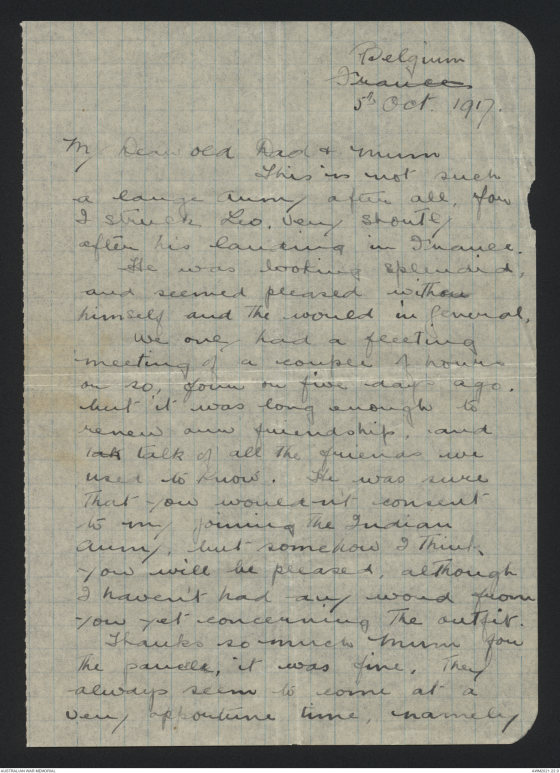 Belgium
France
5th Oct. 1917.
My Dear old Dad & Mum
This is not such
a large army after all, for
I struck Leo, very shortly
after his landing in France.
He was looking splendid,
and seemed pleased with
himself and the world in general.
We only had a fleeting
meeting of a couple of hours
or so, four or five days ago.
but it was long enough to
renew our friendship, and
talk of all the friends we
used to know. He was sure
that you wouldn't consent
to my joining the Indian
Army, but somehow I think,
you will be pleased, although
I haven't had any word from
you yet concerning the outfit.
Thanks so much Mum for
the parcels, it was fine. They
always seem to come at a
very opportune time, namely
AUSTRALIAN WAR MEMORIAL